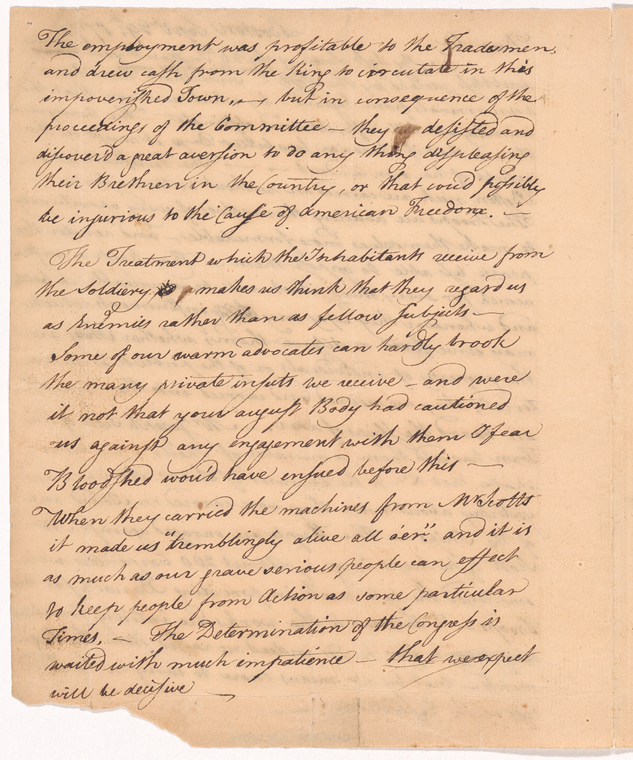 The employment was profitable to the Tradesmen,
and drew cash from the King to circulate in this
impoverished Town, — but in consequence of the
proceedings of the Committee — they desisted and
discover'd a great aversion to do any thing displeasing
their Brethren in the Country, or that cou'd possibly
be injurious to the Cause of American Freedom. —
The Treatment which the Inhabitants receive from
the Soldiery makes us think that they regard us
as Enemies rather than as fellow Subjects —
Some of our warm advocates can hardly brook
the many private insults we receive — and were
it not that your august Body had cautioned
us against any engagement with them I fear
Bloodshed wou'd have ensued before this —
When they carried the machines from Mr Scotts
it made us "tremblingly alive all o'er". and it is
as much as our grave serious people can effect
to keep people from Action as some particular
Times. — The Determination of the Congress is
waited with much impatience — that we expect
will be decisive —